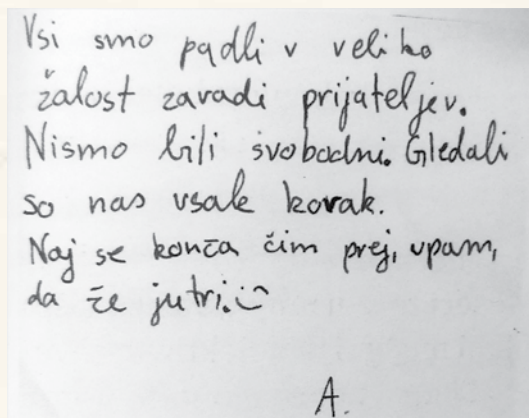 Vsi smo padli v veliko
žalost zavadi prijateljev.
Nismo bili svobodni. Gledali
so nas vsak korak.
Naj se konča čim prej, upam,
da že jutri. :)
A.